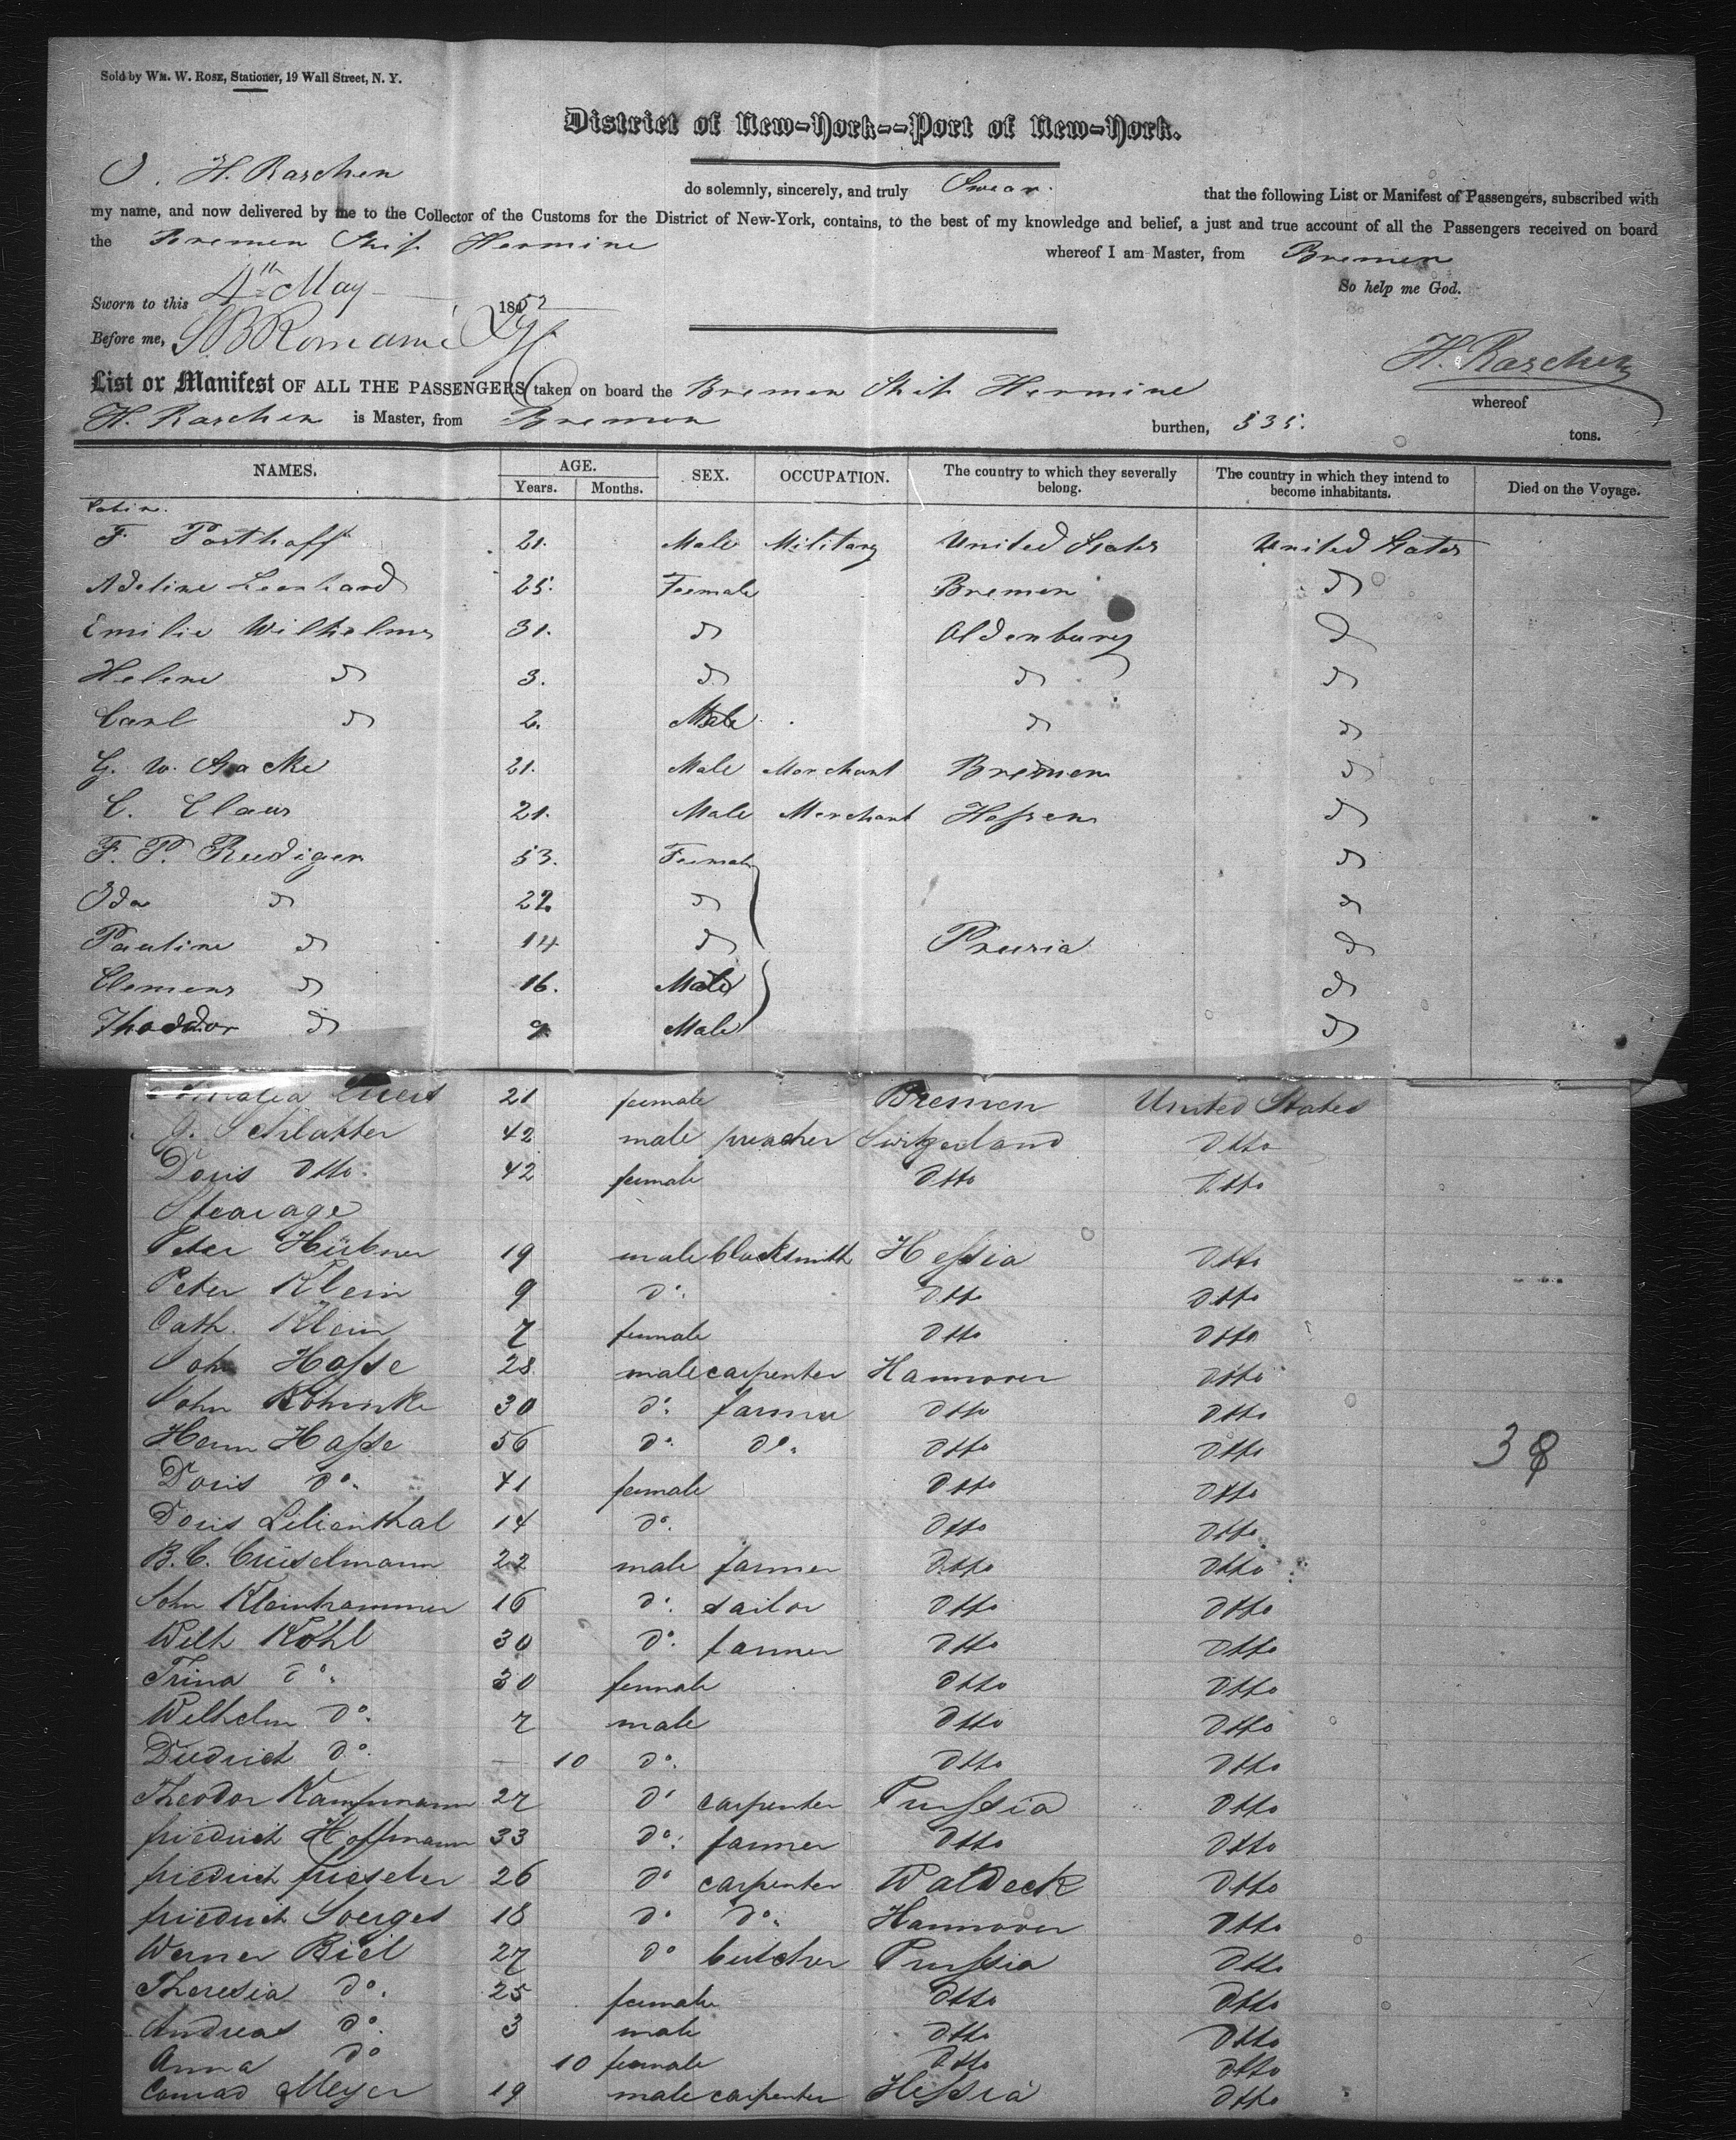 Sold by Wm. W. Rose, Stationer, 19 Wall Street, N. Y.
District of New-York--Port of New-York.
I. H. Raschen do solemnly, sincerely, and truly Swear. that the following List or Manifest of Passengers, subscribed with
my name, and now delivered by me to the Collector of the Customs for the District of New-York, contains, to the best of my knowledge and belief, a just and true account of all the Passengers received on board
the Bremen Ship Hermine whereof I am Master, from Bremen
So help me God.
Sworn to this 4th May 1852
Before me,
H. Raschen
List or Manifest OF ALL THE PASSENGERS taken on board the Bremen Ship Hermine whereof
H. Raschen is Master, from Bremen burthen, 535. tons.
NAMES. AGE. Years. Months. SEX. OCCUPATION. The country to which they severally belong. The country in which they intend to become inhabitants. Died on the Voyage.
Cabin.
F. Posthoff 21. Male Military United States United States
Adeline Leonhard 25. Feemale Bremen do
Emilie Wilhelms 31. do Oldenburg do
Helene do 3. do do do
Carl do 2. Male do do
G. W. 21. Male Merchant Bremen do
C. Claus 21. Male Merchant Hessen do
F. P. Rudiger 53. Feemale do
Ida do 22 do do
Pauline do 14 do Prussia do
Clemens do 16. Male do
Theodor do 9 Male do
21 female Bremen United States
J. Schlatter 42 male preacher Switzerland Dtto
Doris Dtto 42 female Dtto Dtto
Stearage
Peter Hübner 19 male blacksmith Hessia Dtto
Peter Klein 9 do. Dtto Dtto
Cath. Klein 7 female Dtto Dtto
Joh Hasse 28 male carpenter Hannover Dtto
John 30 do. farmer Dtto Dtto
Herm Hasse 56 do. do. Dtto Dtto
38
Doris do. 41 female Dtto Dtto
Doris Lilienthal 14 do. Dtto Dtto
B. C. Crüselmann 22 male farmer Dtto Dtto
John Kleinhammer 16 do. sailor Dtto Dtto
Wilh Köhl 30 do. farmer Dtto Dtto
Trina do. 30 female Dtto Dtto
Wilhelm do. 7 male Dtto Dtto
Diedrich do. — 10 do. Dtto Dtto
Theodor Kampmann 27 do carpenter Prussia Dtto
friedrich Hoffmann 33 do. farmer Dtto Dtto
friedrich frieseler 26 do carpenter Waldeck Dtto
friedrich Soerges 18 do do. Hannover Dtto
Werner Biel 27 do butcher Prussia Dtto
Theresia do. 25 female Dtto Dtto
Andreas do. 3 male Dtto Dtto
Anna do 10 female Dtto Dtto
Conrad Meyer 19 male carpenter Hessia Dtto